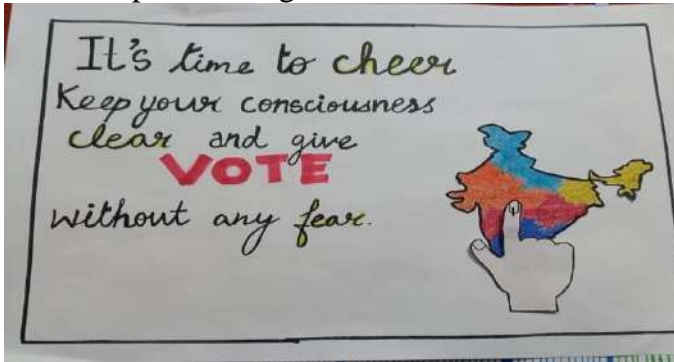 It's time to cheer
Keep your consciousness
clear and give
VOTE
without any fear.